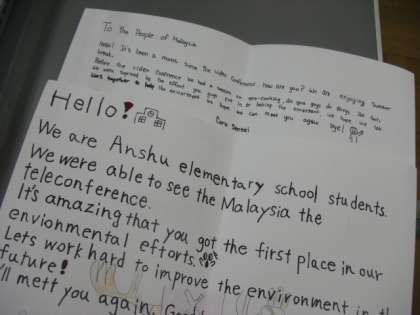 To the People of Malaysia
Hello! It's been a month since the video conference! how are you? We are enjoying summer
break.
Before the video conference we had a session on eco-cooking, do you guys do things like that,
We were inspired by the effort you guys put in to taking the environment we hope we can
work together to help the environment we hope we can meet you again bye!
Hello!
We are Anshu elementary school students.
We were able to see the Malaysia the
teleconference.
It's amazing that you got the first place in our
envionmental efforts.
Lets work hard to improve the environment in th
future!
'll mett you again.